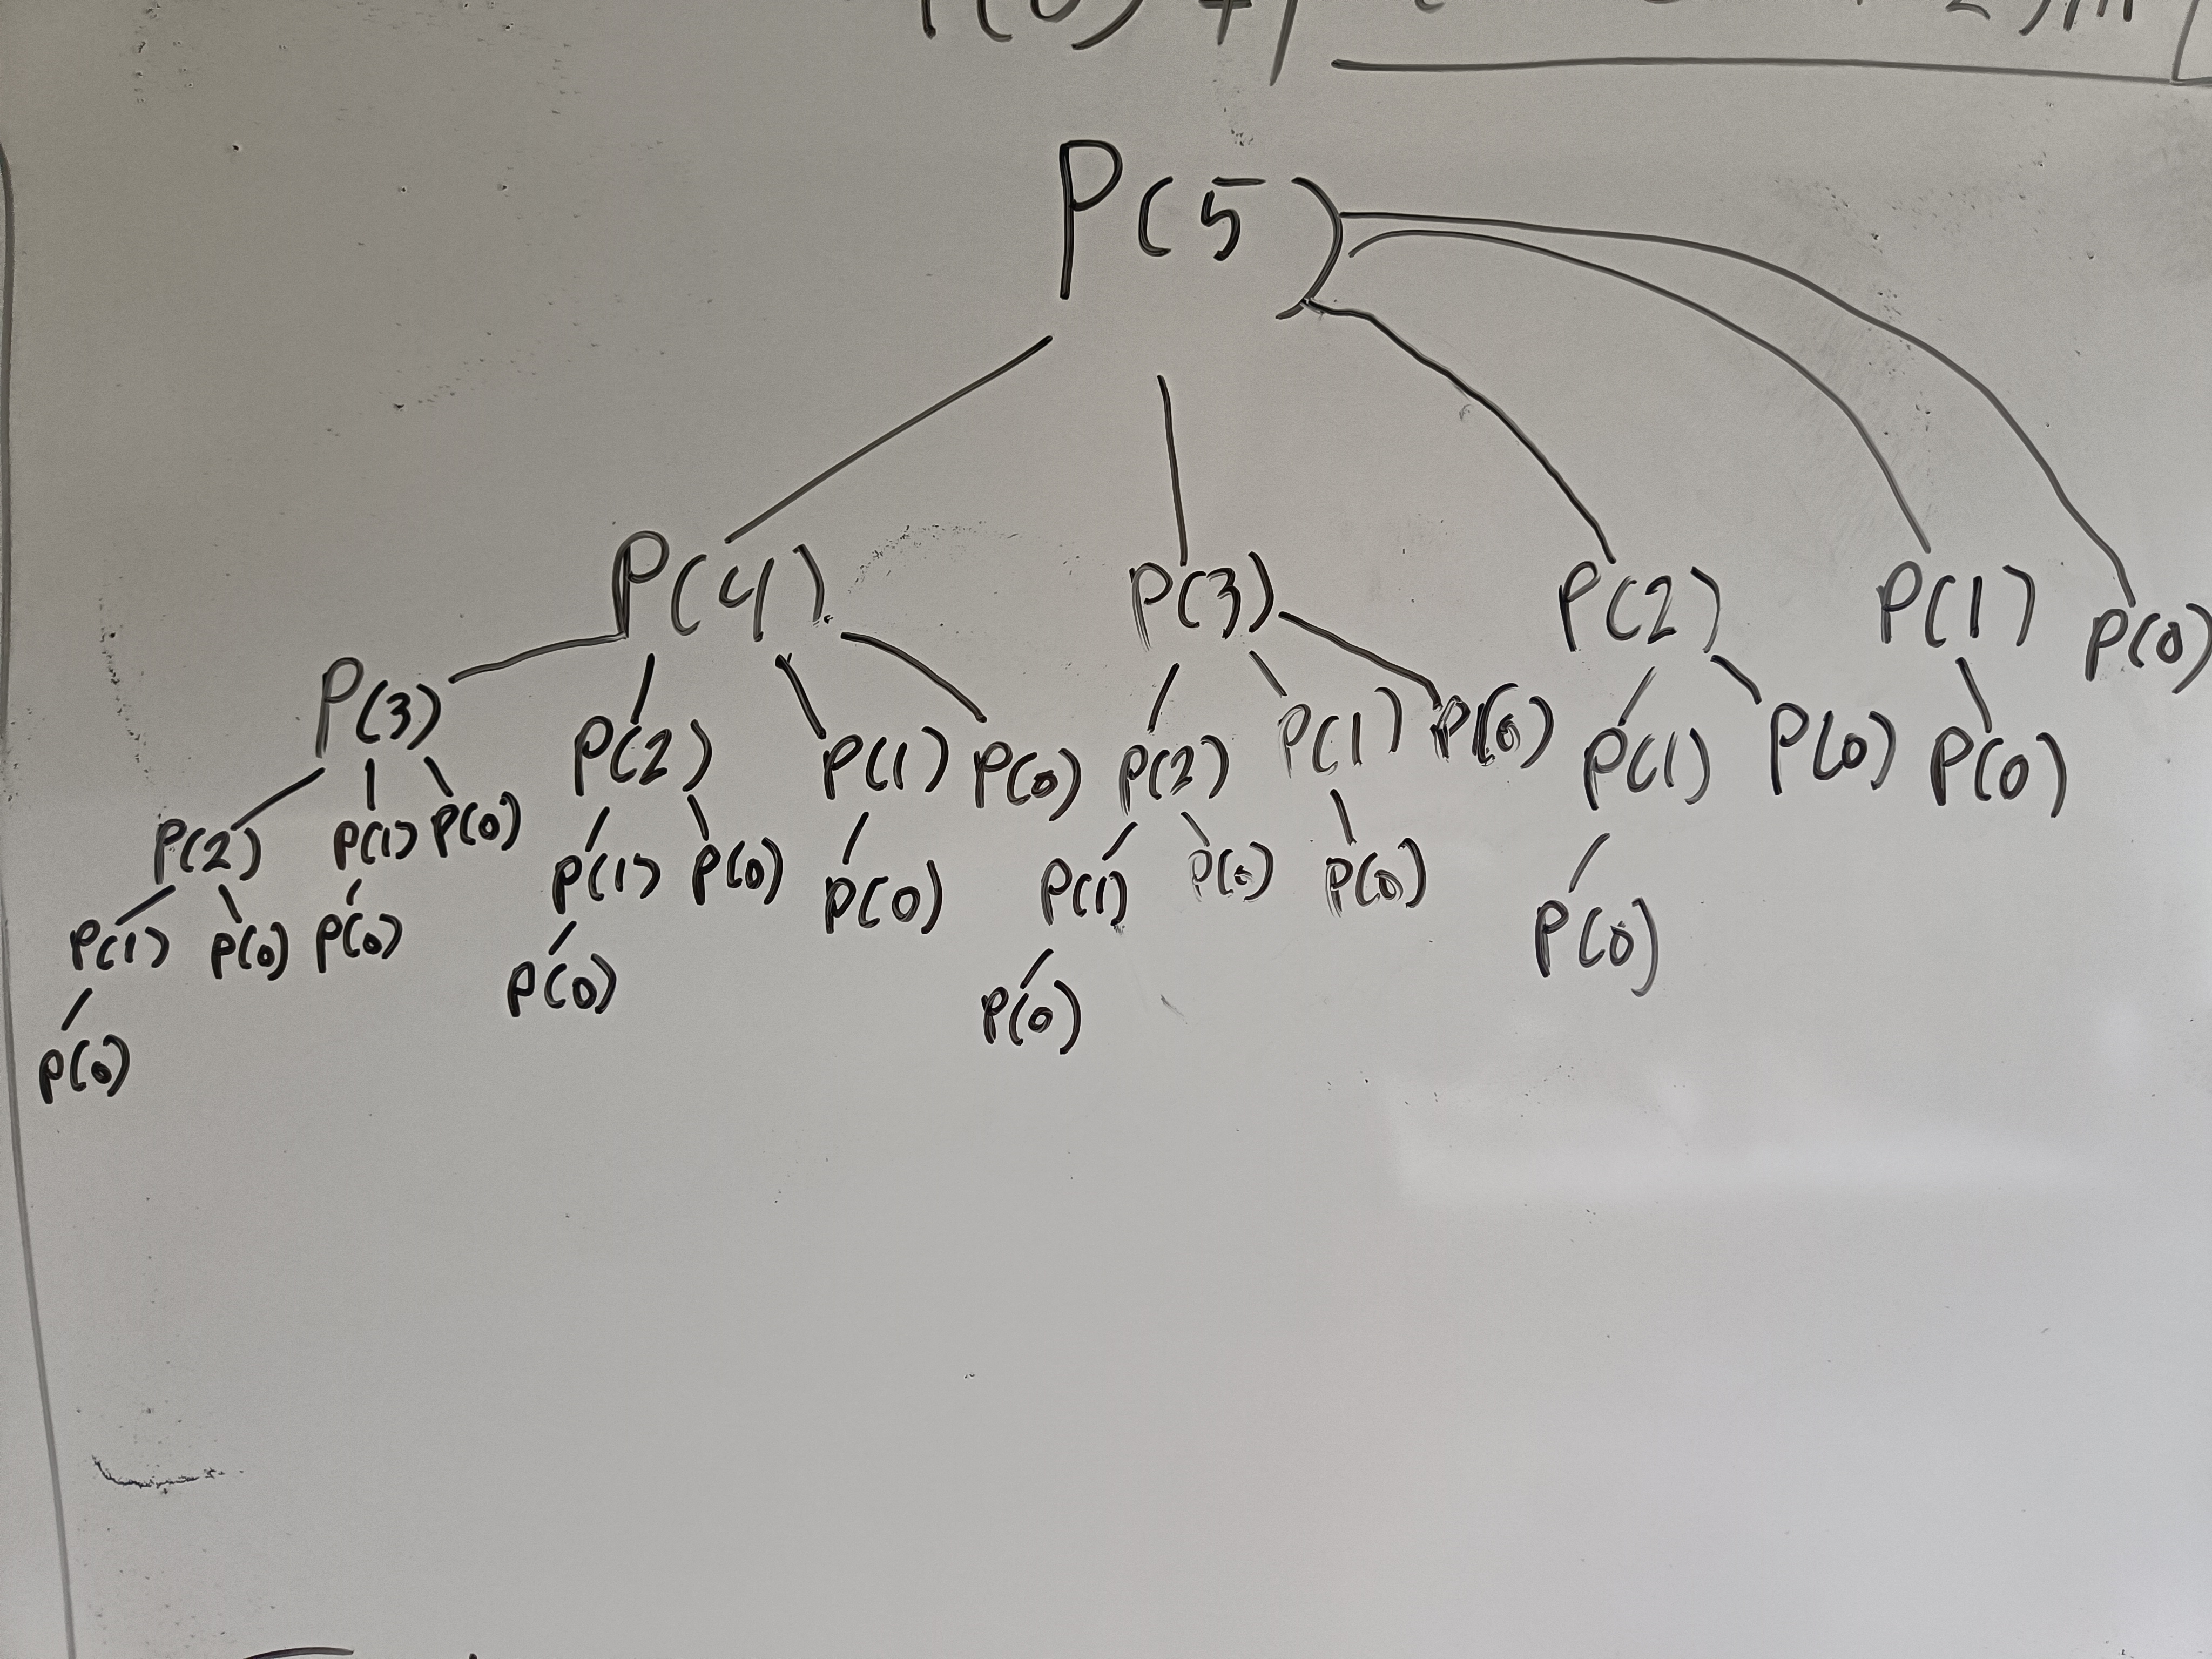 P(0) +
P(5)
P(4) P(3) P(2) P(1) P(0)
P(3) P(2) P(1) P(0) P(2) P(1) P(0) P(1) P(0) P(0)
P(2) P(1) P(0) P(1) P(0) P(0) P(1) P(0) P(0) P(0)
P(1) P(0) P(0) P(0) P(0)
P(0)